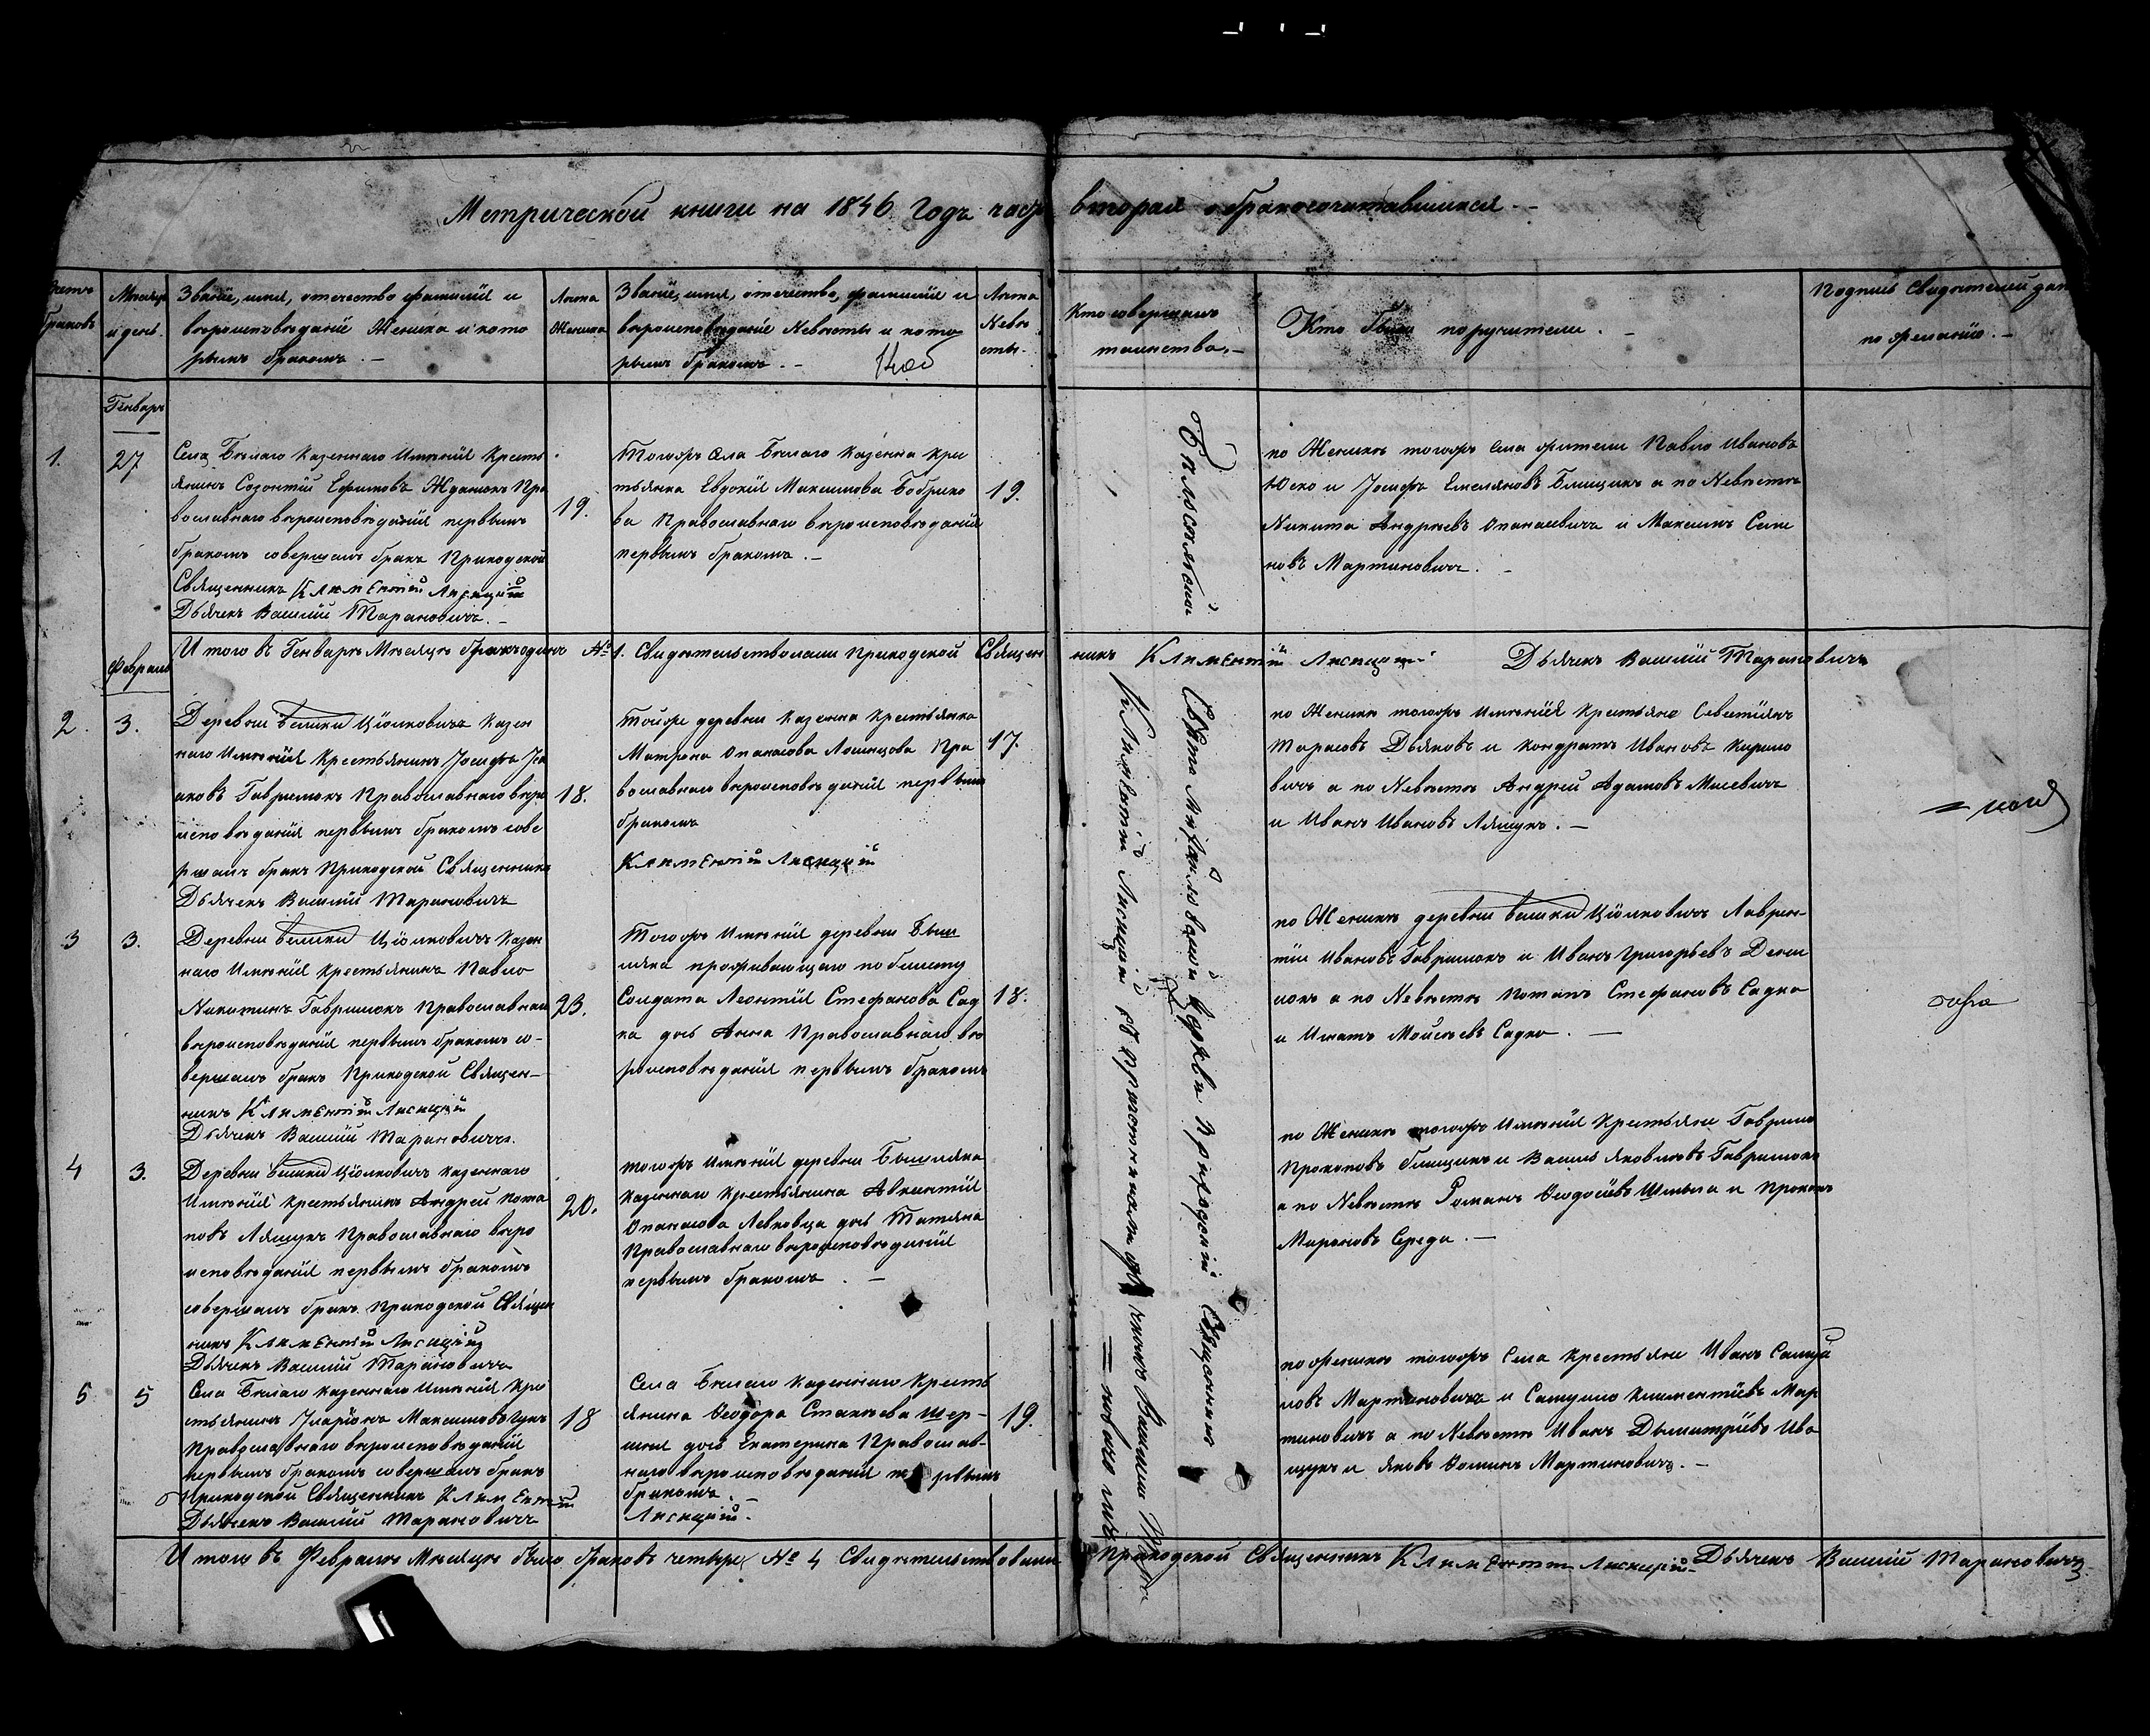 Метрической книги на 1846 Годъ часть вторая о бракосочетавшихся. -
Счетъ браковъ
Месяцъ и день.
Званіе, имя, отечество фамилія и
вероисповѣданіе Жениха и кото
рымъ бракомъ. -
Лѣта Жениха
Званіе, имя, отечество, фамилія и
вѣроисповѣданіе Невѣсты и кото
рымъ бракомъ. -
Лѣта Невѣ сты.
Кто совершалъ
таинства. -
Кто были поручители. -
Подпись Свидѣтелей зап
по желанію. -
Генварь
1.
27
Села Бѣлаго Казеннаго Имѣнія Кресть
янинъ Созонтій Ефимовъ Жданюкъ Пра
вославнаго вѣроисповѣданія первымъ
бракомъ совершалъ бракъ Приходской
Священникъ Климентій Лисицкій
Дьячекъ Василій Тарановичъ. -
19.
Тогожъ Села Бѣлаго Казенна Кре
тьянка Евдокія Максимова Бобрико
ва Православнаго вѣроисповѣданія
первымъ бракомъ. -
19.
по Женихѣ тогожъ села жители Павло Ивановъ
Юско и Іосифъ Емеляновъ Блищикъ а по Невѣстѣ
Никита Андреевъ Опанасевичъ и Максимъ Семе
новъ Мартиновичъ. -
Итого въ Генварѣ Месяцѣ бракъ одинъ № 1. Свидѣтельствовали Приходской Священ
никъ Климентій Лисицкій Дьячекъ Василій Тарановичъ
Февраль
2.
3.
Деревни Велики Цѣлковичъ Казен
наго Имѣнія Крестьянинъ Іосифъ Іса
аковъ Гаврилюкъ Православнаго вѣро
исповѣданія первымъ бракомъ сове
ршалъ бракъ Приходской Священникъ
Дьячекъ Василій Тарановичъ
18.
Тойже деревни Казенна Крестьянка
Матрона Опанасова Лошицова Пра
вославнаго вѣроисповѣданія первымъ
бракомъ
Климентій Лисицкій
17.
по Женихѣ тогожъ Имѣнія Крестьяне Севастіянъ
Тарасовъ Дьяковъ и Кондратъ Ивановъ Кирило
вичъ а по Невѣстѣ Андрей Адамовъ Мисевичъ
и Иванъ Ивановъ Лящукъ. -
3
3.
Деревни Велики Цѣлковичъ Казен
наго Имѣнія Крестьянинъ Павло
Никитинъ Гаврилюкъ Православнаго
вѣроисповѣданія первымъ бракомъ со-
вершалъ бракъ Приходской Священ-
никъ Климентій Лисицкій
Дьячекъ Василій Тарановичъ.
23.
Тогожъ Имѣнія деревни Быш
ляка проживающаго по билету
Солдата Леонтія Стефанова Сад
ка дочь Анна Православнаго вѣ
роисповѣданія первымъ бракомъ
18.
по Женихѣ деревни Велики Цѣлковичъ Лаврен-
тій Ивановъ Гаврилюкъ и Иванъ Григорьевъ Дени
юкъ а по Невѣстѣ Потапъ Стефановъ Садко
и Игнатъ Мойсеевъ Садко. -
4
3.
Деревни Велики Цѣлковичъ казеннаго
Имѣнія крестьянинъ Андрей Пота
повъ Лящукъ Православнаго вѣро
исповѣданія первымъ бракомъ
совершалъ бракъ Приходской Священ
никъ Климентій Лисицкій
Дьячекъ Василій Тарановичъ
20.
тогожъ Имѣнія деревни Бышляка
Казеннаго Крестьянина Авксентія
Опанасова Левковца дочь Татяна
Православнаго вѣроисповѣданія
первымъ бракомъ. -
по Женихѣ тогожъ Имѣнія Крестьяне Гаврило
Прокоповъ Блищикъ и Василь Яковлевъ Гаврилюкъ
а по Невѣстѣ Романъ Феодосіевъ и Прокопъ
Мироновъ Середа. -
5
5
Села Бѣлаго казеннаго Имѣнія Кре
стьянинъ Іларіонъ Максимовъ
Православнаго вѣроисповѣданія
первымъ бракомъ совершалъ бракъ
Приходской Священникъ Климентій
Дьячекъ Василій Тарановичъ
18
Села Бѣлаго казеннаго Кресть
янина Феодора Стахѣева Шер-
шня дочь Екатерина Православ-
наго вѣроисповѣданія первымъ
бракомъ. -
Лисицкій.
19.
по женихѣ тогожъ Села Крестьяне Иванъ Самуи
ловъ Мартиновичъ и Самуило Климентіевъ Мар
тиновичъ а по Невѣстѣ Иванъ Дмитріевъ Ива
щукъ и Яковъ Фоминъ Мартиновичъ. -
Бѣльсельской
Свято Михайловской Церкви Приходскій Священникъ
Климентій Лисицкій съ причетникомъ Дьячкомъ Василіемъ
Итого въ Февралѣ Месяцѣ было браковъ четыре № 4 Свидѣтельствовали Приходской Священникъ Климентій Лисицкій. Дьячекъ Василій Тарановичъ.